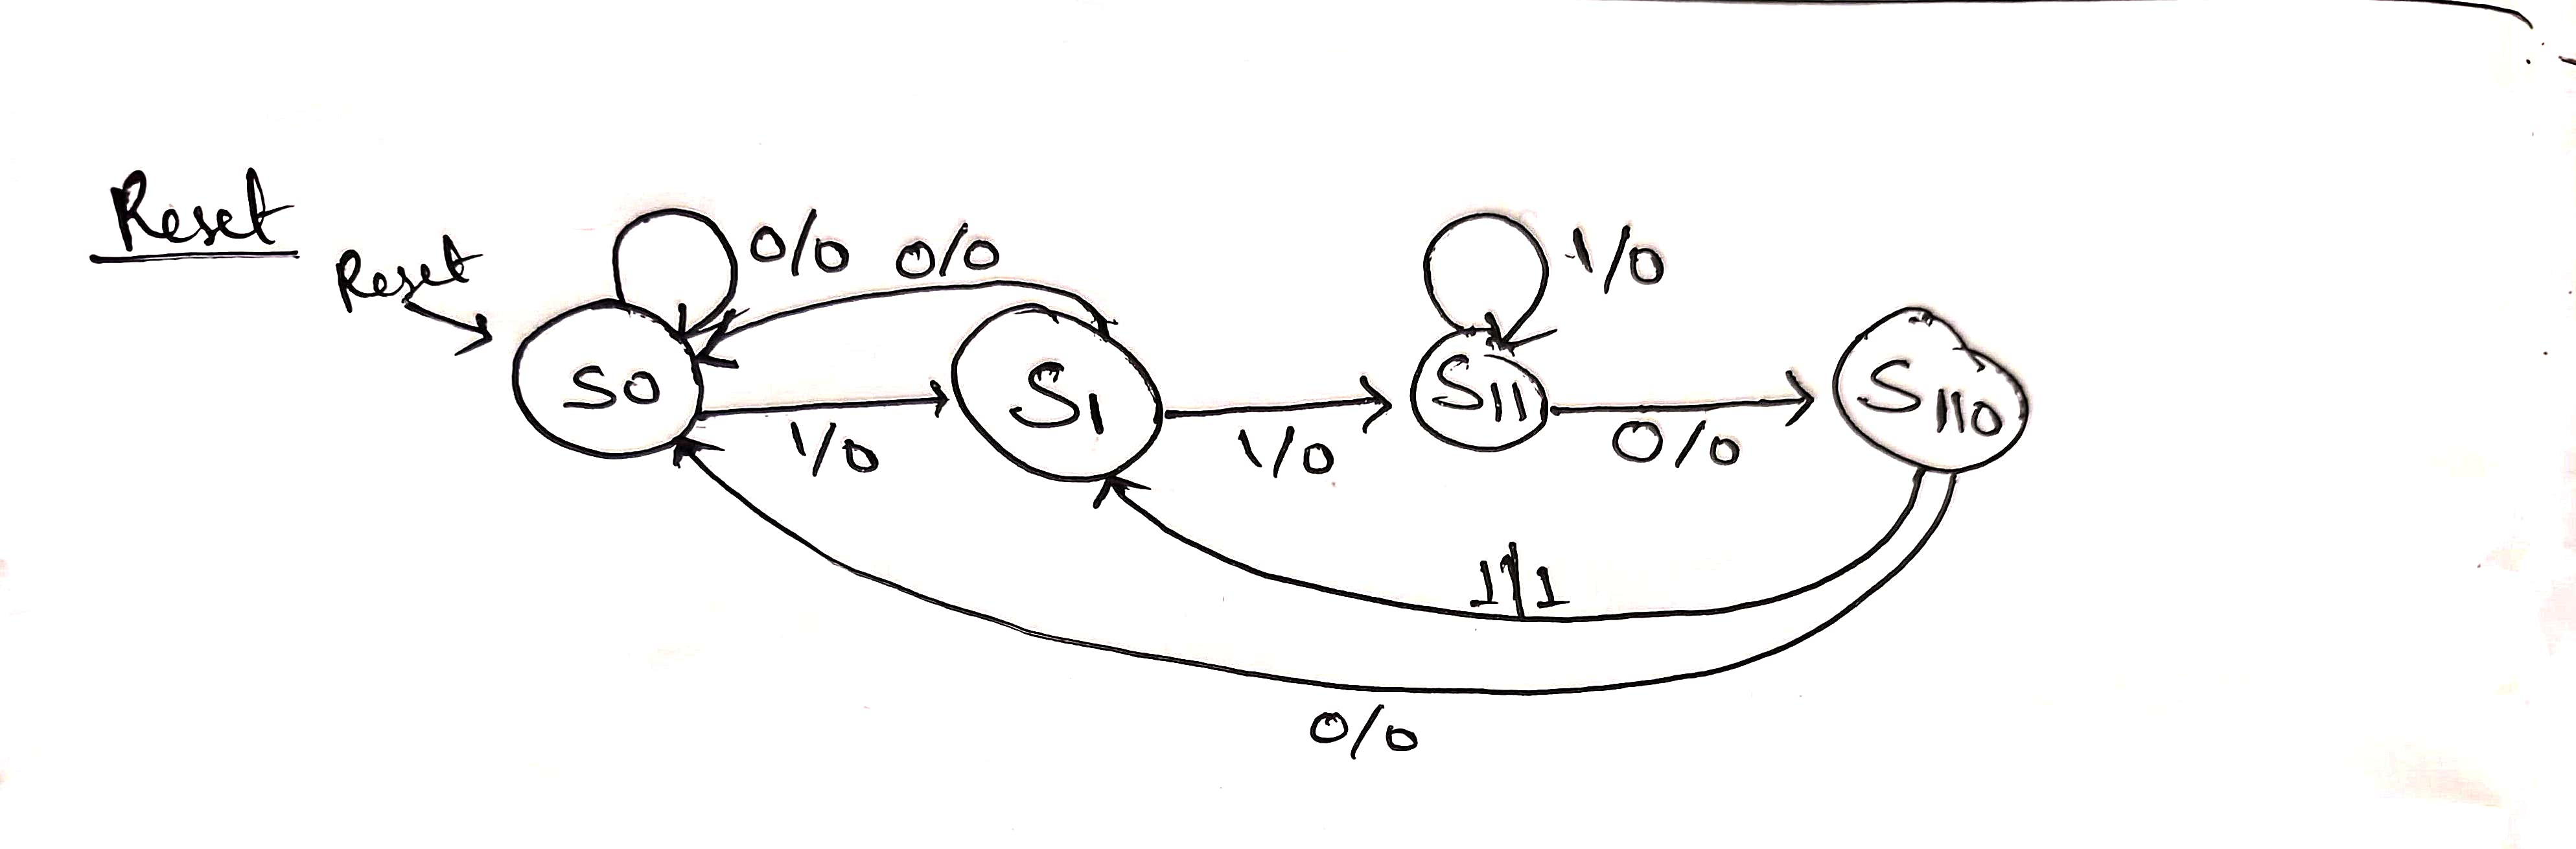 Reset
Reset
0/0
0/0
1/0
S0
S1
S11
S110
1/0
1/0
0/0
1/1
0/0